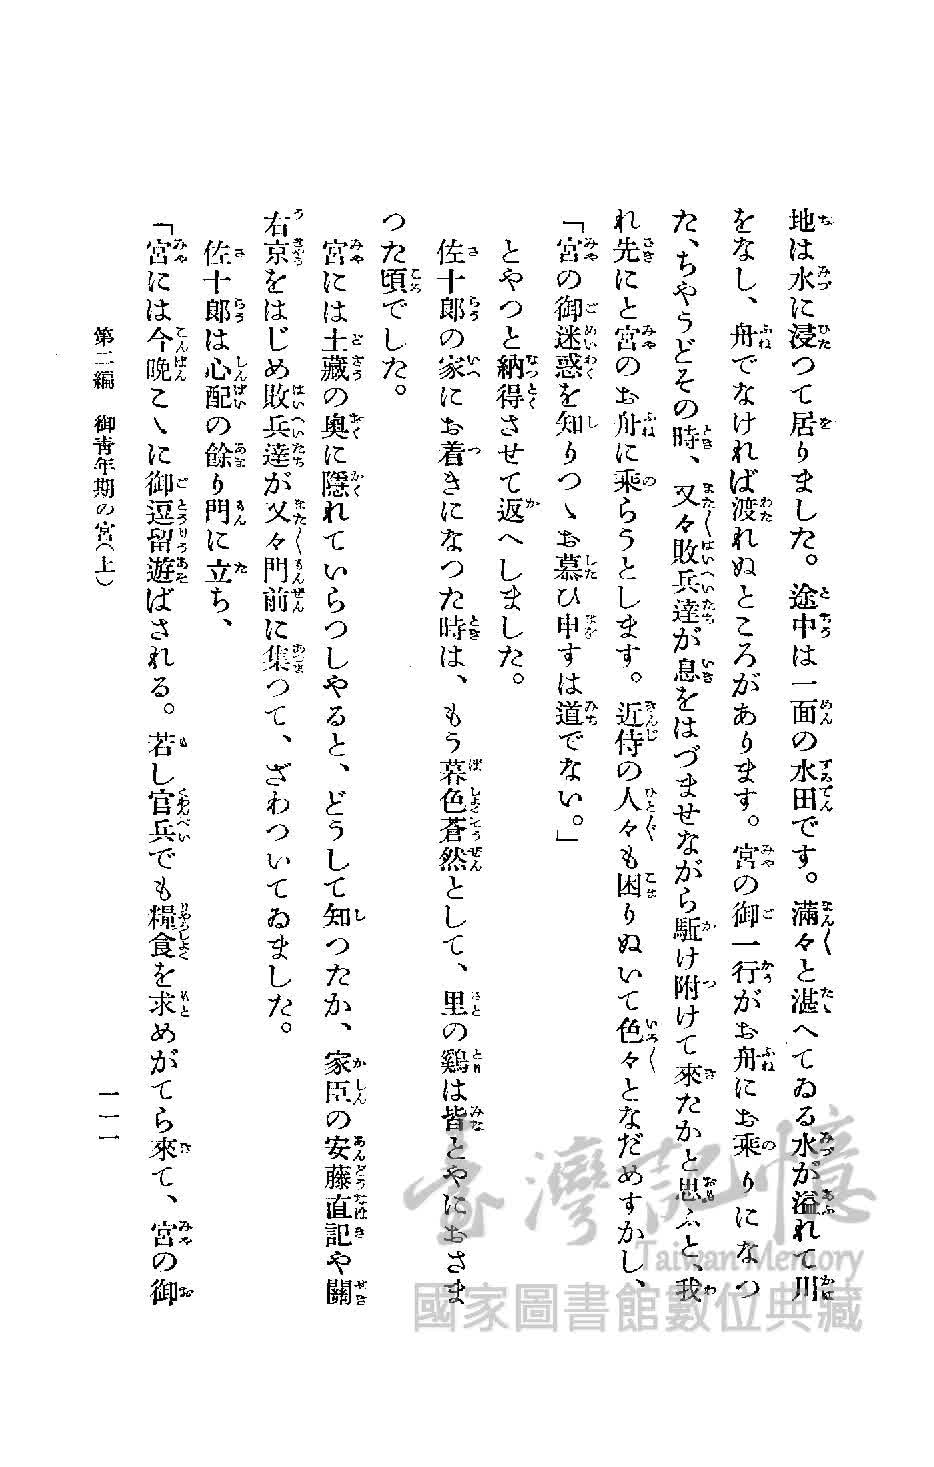 地は水に浸つて居りました。途中は一面の水田です。滿々と湛へてゐる水が溢れて川
をなし、舟でなければ渡れぬところがあります。宮の御一行がお舟にお乘りになつ
た、ちやうどその時、又々敗兵達が息をはづませながら駈け附けて來たかと思ふと、我
れ先にと宮のお舟に乘らうとします。近侍の人々も困りぬいて色々となだめすかし、
「宮の御迷惑を知りつゝお慕ひ申すは道でない。」
とやつと納得させて返へしました。
佐十郎の家にお着きになつた時は、もう暮色蒼然として、里の鷄は皆とやにおさま
つた頃でした。
宮には土藏の奧に隱れていらつしやると、どうして知つたか、家臣の安藤直記や關
右京をはじめ敗兵達が又々門前に集つて、ざわついてゐました。
佐十郎は心配の餘り門に立ち、
「宮には今晩こゝに御逗留遊ばされる。若し官兵でも糧食を求めがてら來て、宮の御
第二編 御靑年期の宮(上)
一一一
臺灣記憶
Taiwan Memory
國家圖書館數位典藏